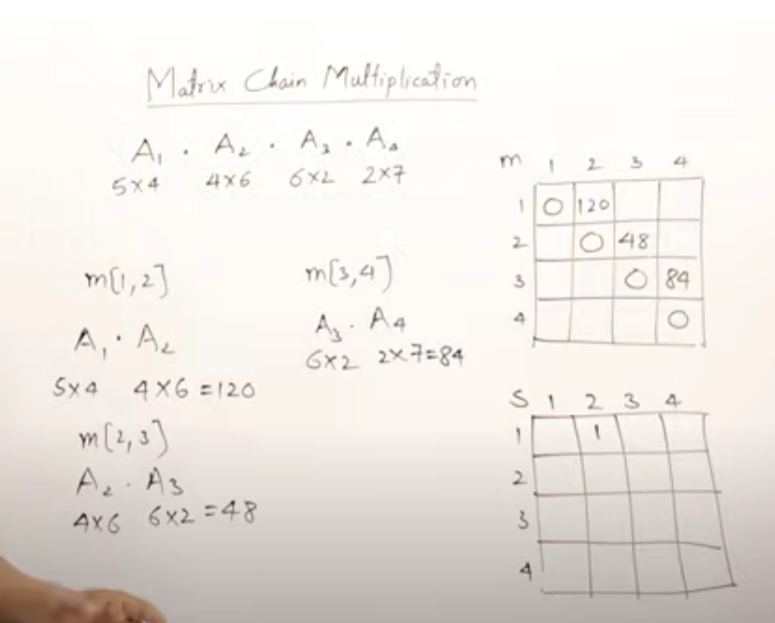 Matrix Chain Multiplication
A₁ . A₂ . A₃ . A₄
5×4 4×6 6×2 2×7
m[1,2]
A₁ . A₂
5×4 4×6 =120
m[2,3]
A₂ . A₃
4×6 6×2 =48
m[3,4]
A₃ . A₄
6×2 2×7=84
m 1 2 3 4
1 0 120
2 0 48
3 0 84
4 0
S 1 2 3 4
1 1
2
3
4